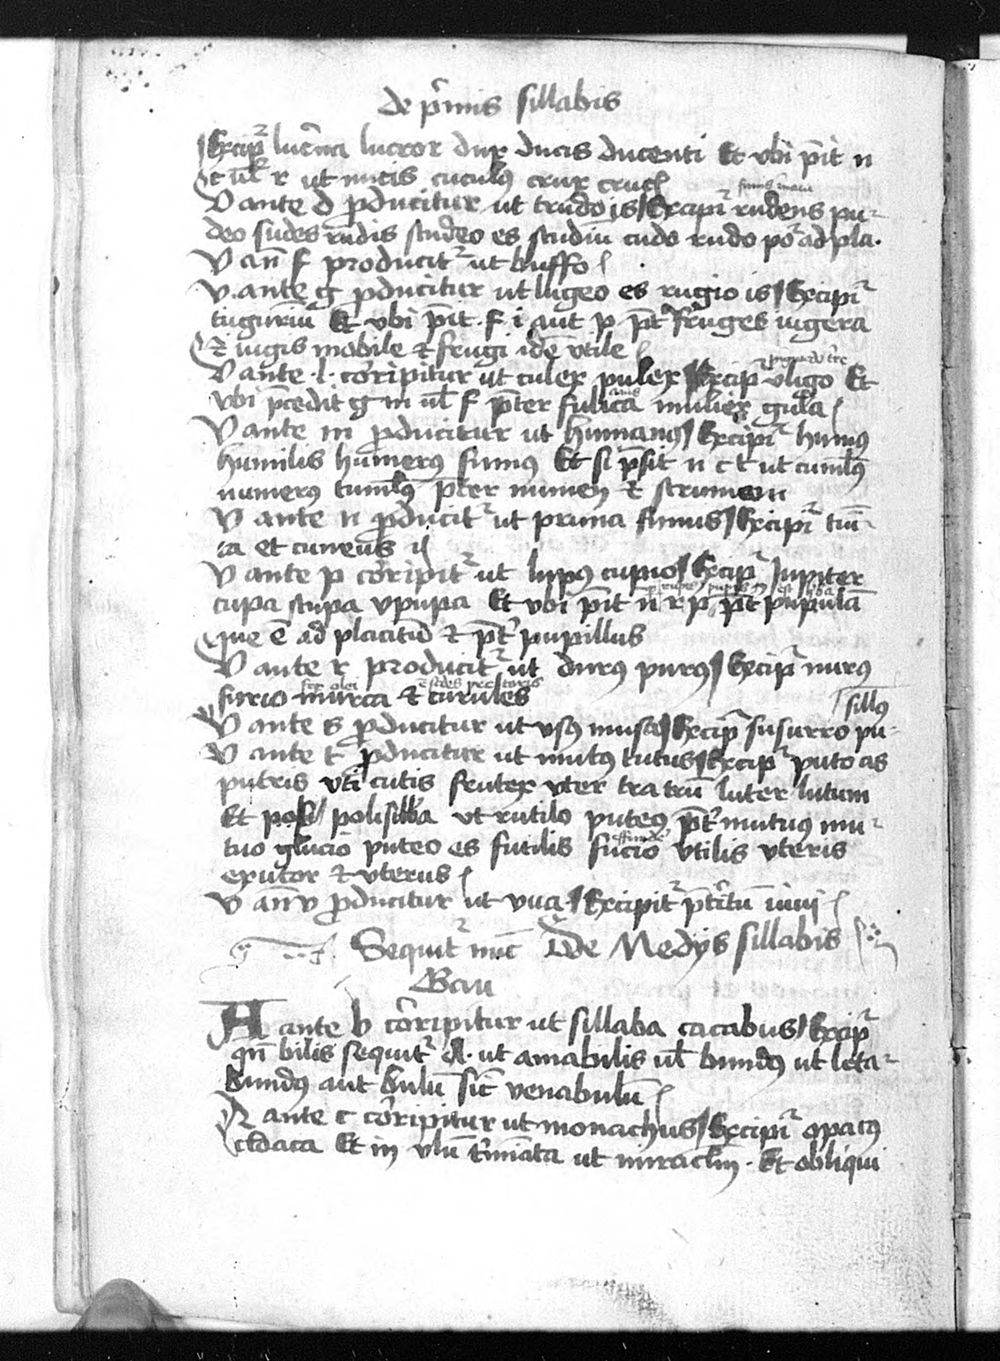 de p̄mis sillabis
Excip̄ lucͤna lucror dux ducis ducenti Et vbi p̄it n
c ul̄ r ut nucis cuculꝰ crux crucꝭ
V ante d ꝓducitur ut trudo is Excipr̄ rudens pu-
deo sudes rudis studeo es studiū cudo rudo po᷑ ad pla.
V an̄ f producit᷑ ut buffo
V ante g ꝓducitur ut lugeo es rugio is Excipr̄
tuguriū Et vbi p̄it f i aut p p̄t᷑ fruges iugera
Et iugis mobile et frugi idē vtile
V ante l corripitur ut culex pulex Excip᷑ vligo Et
vbi p̄cedit g m ul̄ f p̄ter fulica mulier gula
V ante m ꝓducitur ut humanꝰ Excipr̄ humꝰ
humilis humerꝰ fumꝰ Et si p̄sit n c t ut cumulꝰ
numerꝰ tumulꝰ p̄ter numen et strumam
V ante n ꝓducit᷑ ut pruna funus Excipr̄ tuni-
ca et cuneus
V ante p corripit᷑ ut lupꝰ cupio Excip᷑ Iupiter
cupa stupa vpupa Et vbi p̄it n r p p̄t pupulā
que ē ad placitū et p̄t᷑ pupillus
V ante r producit᷑ ut durꝰ purꝰ Excip᷑ nurꝰ
furio murca et curules
sillꝰ
V ante s ꝓducitur ut vsꝰ musa Excip᷑ susurro pu-
V ante t ꝓducitur ut mutꝰ tutus Excip᷑ puto as
putris uti cutis frutex vter tra trū luter lutum
Et polisillba ut rutilo puteꝰ p̄t᷑ mutuꝰ mu-
tuo glucio puteo es futilis fucio vtilis vteris
exutor et vterus
V an̄ v ꝓducitur ut vua Excipit᷑ p̄tͥtū iuui
Sequit᷑ nūc De Medijs sillabis
Bau
A ante b corripitur ut sillaba cacabus Excip᷑
qn̄ bilis sequit᷑ A ut amabilis ul̄ bundꝰ ut leta-
bundꝰ aut bulū sic̄ venabulū
A ante c corripitur ut monachus Excipr̄ opacꝰ
cloaca Et in ulū t᷑mīata ut miraculū Et obliqui